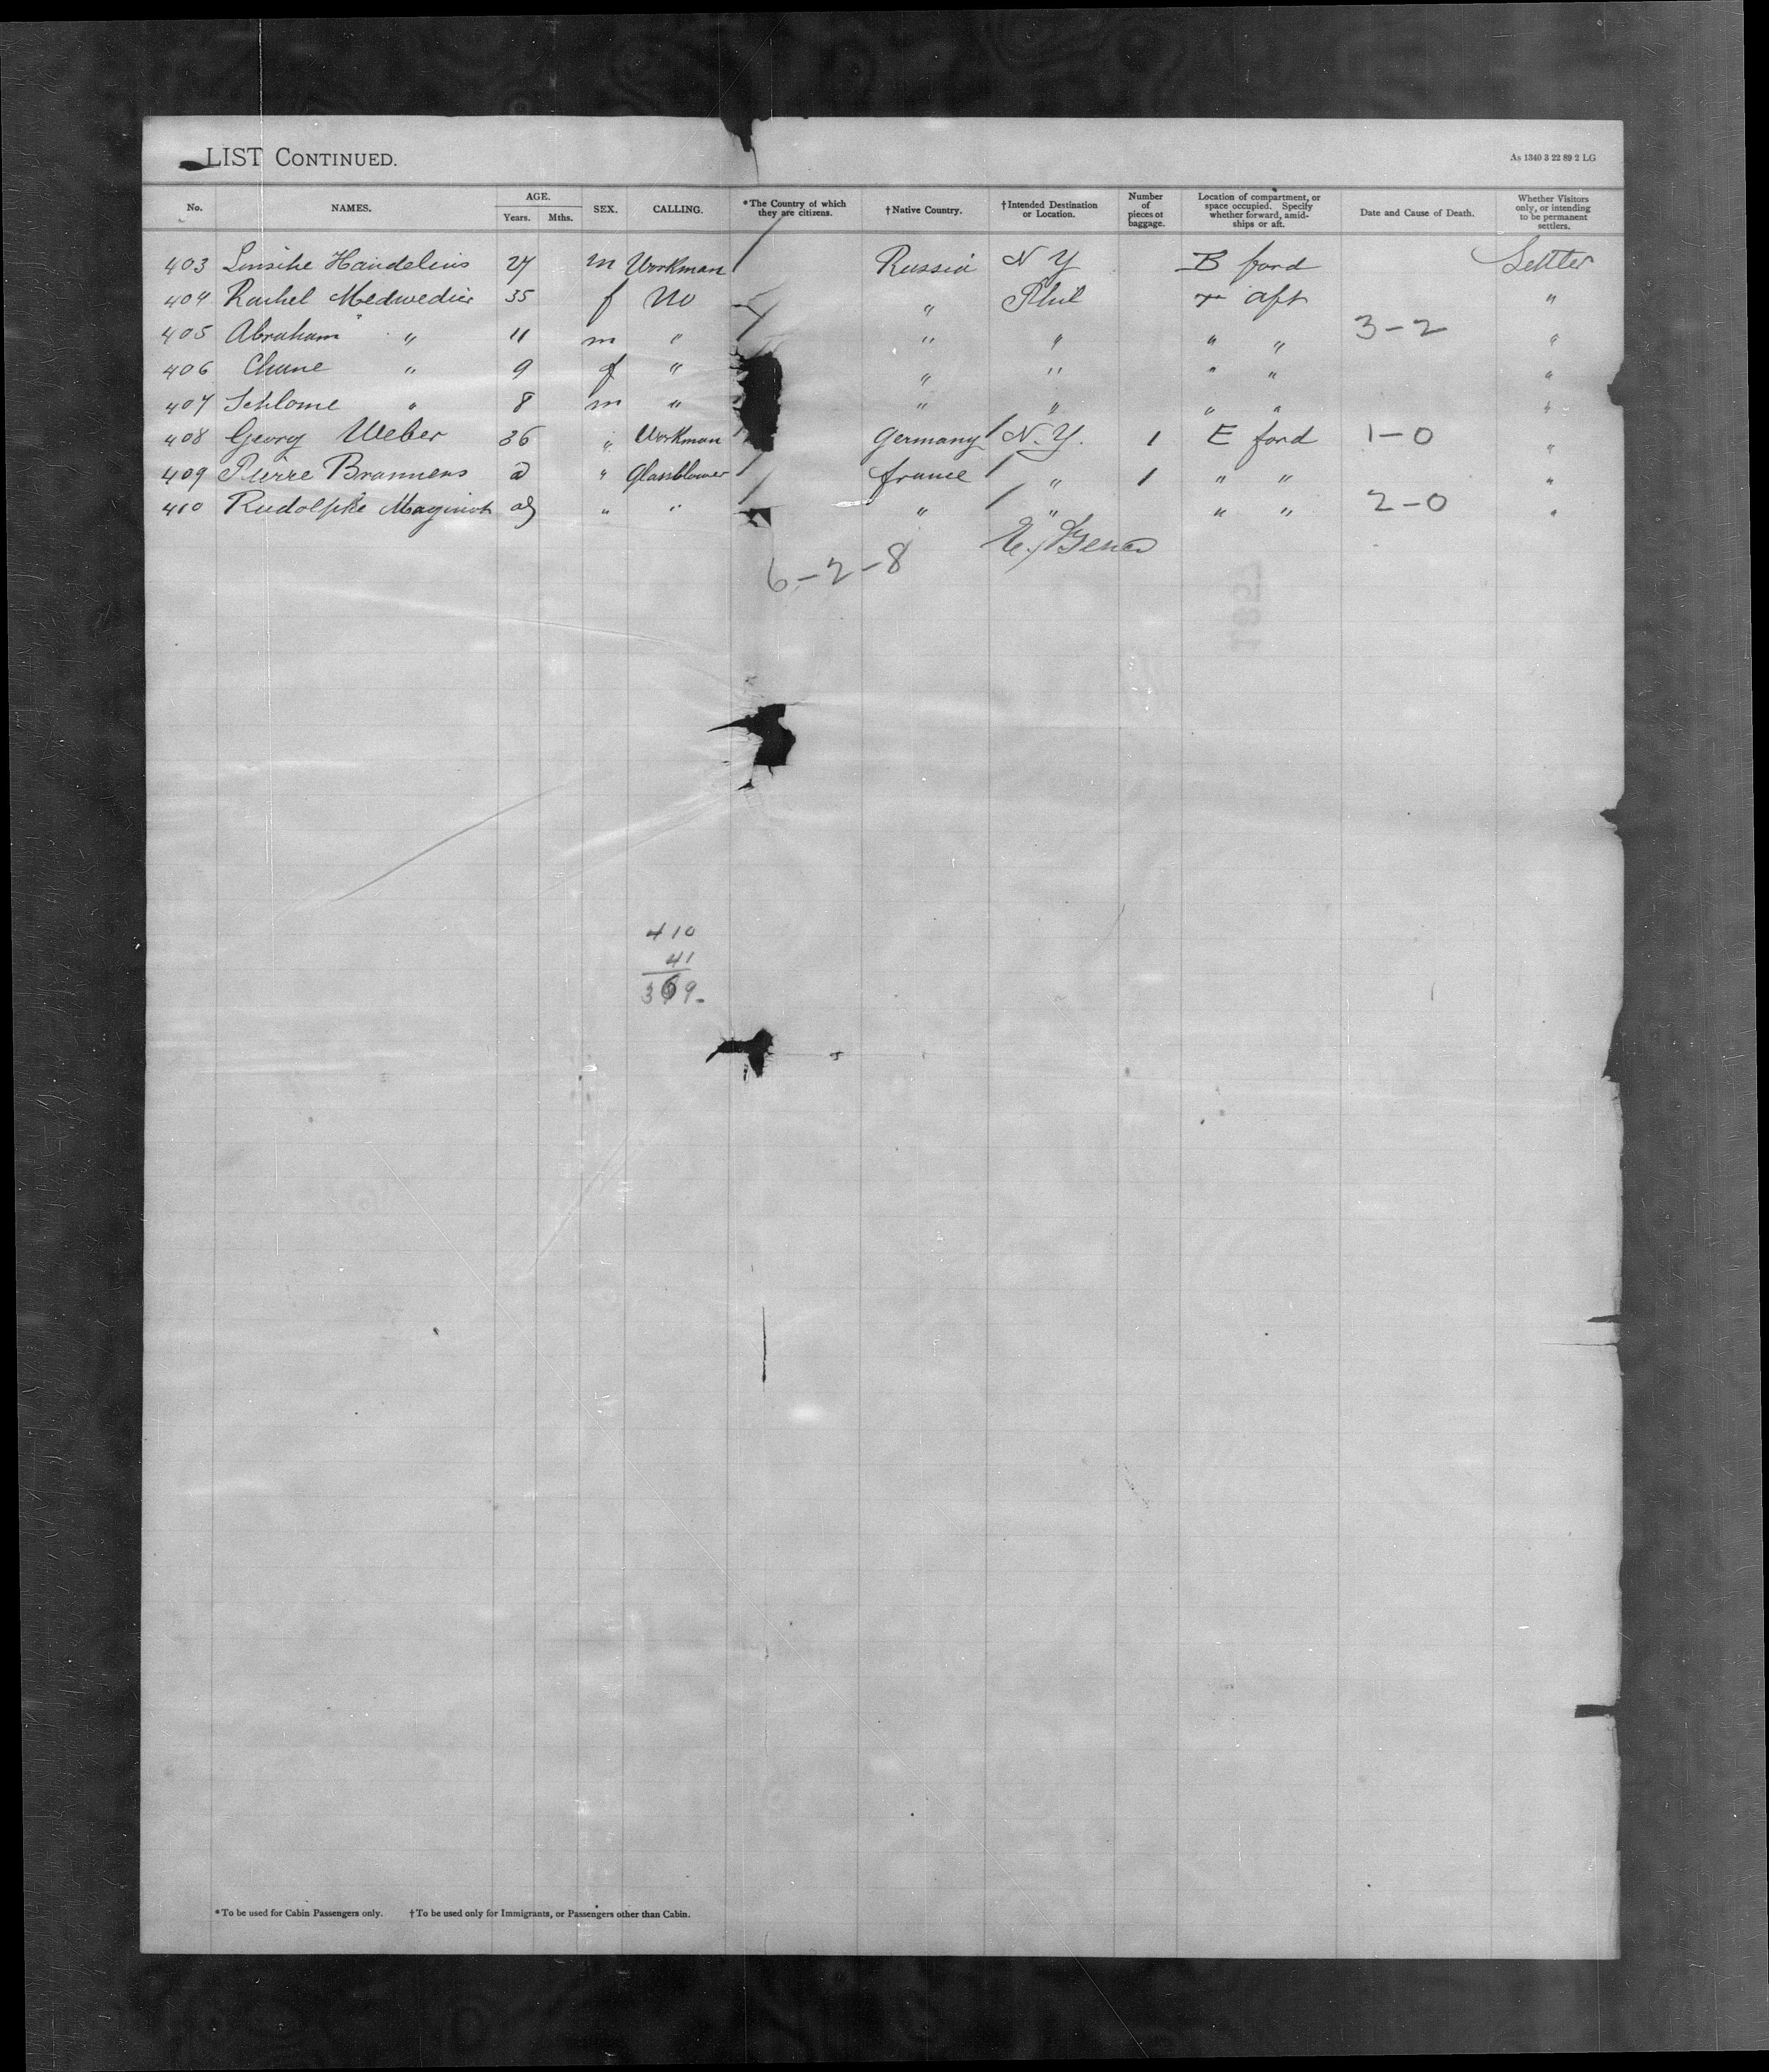 LIST CONTINUED.
As 1340 3 22 89 2 LG
No. NAMES. AGE. Years. Mths. SEX. CALLING. *The Country of which they are citizens. †Native Country. †Intended Destination or Location. Number of pieces of baggage. Location of compartment, or space occupied. Specify whether forward, amidships or aft. Date and Cause of Death. Whether Visitors only, or intending to be permanent settlers.
403 Handelius 27 m Workman / Russia N Y B ford Settler
404 Rachel 35 f no " Phil aft "
405 Abraham " 11 m " / " " " " 3-2 "
406 Chane " 9 f " " " " " "
407 Schlome " 8 m " " " " " "
408 Georg Weber 36 " Workman / Germany / N.Y. 1 E ford 1-0 "
409 Pierre " Glassblower / france / " 1 " " "
410 Rudolphe " " " / " " " 2-0 "
6-2-8
410
41
369-
*To be used for Cabin Passengers only. †To be used only for Immigrants, or Passengers other than Cabin.